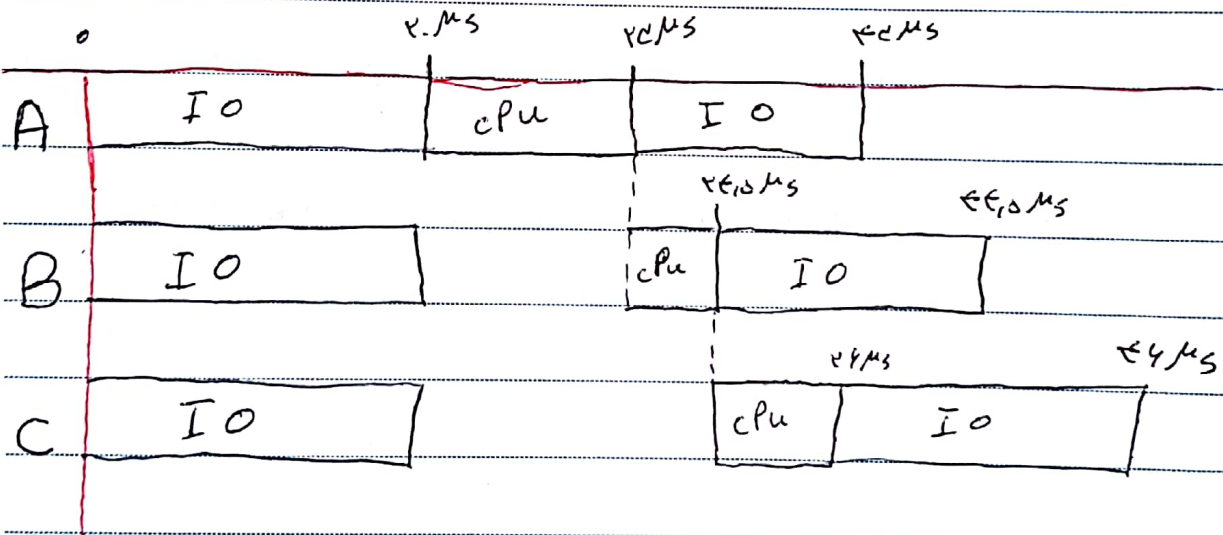 0 ۲۰ μs ۲۳ μs ۴۳ μs
A IO CPU IO
۲۴,۵ μs ۴۴,۵ μs
B IO CPU IO
۲۶ μs ۴۶ μs
C IO CPU IO